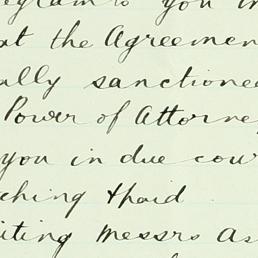 egrams you in
at the Agreemen
ally sanctioned
Power of Attorney
you in due cour
ching +paid
iting Messrs As